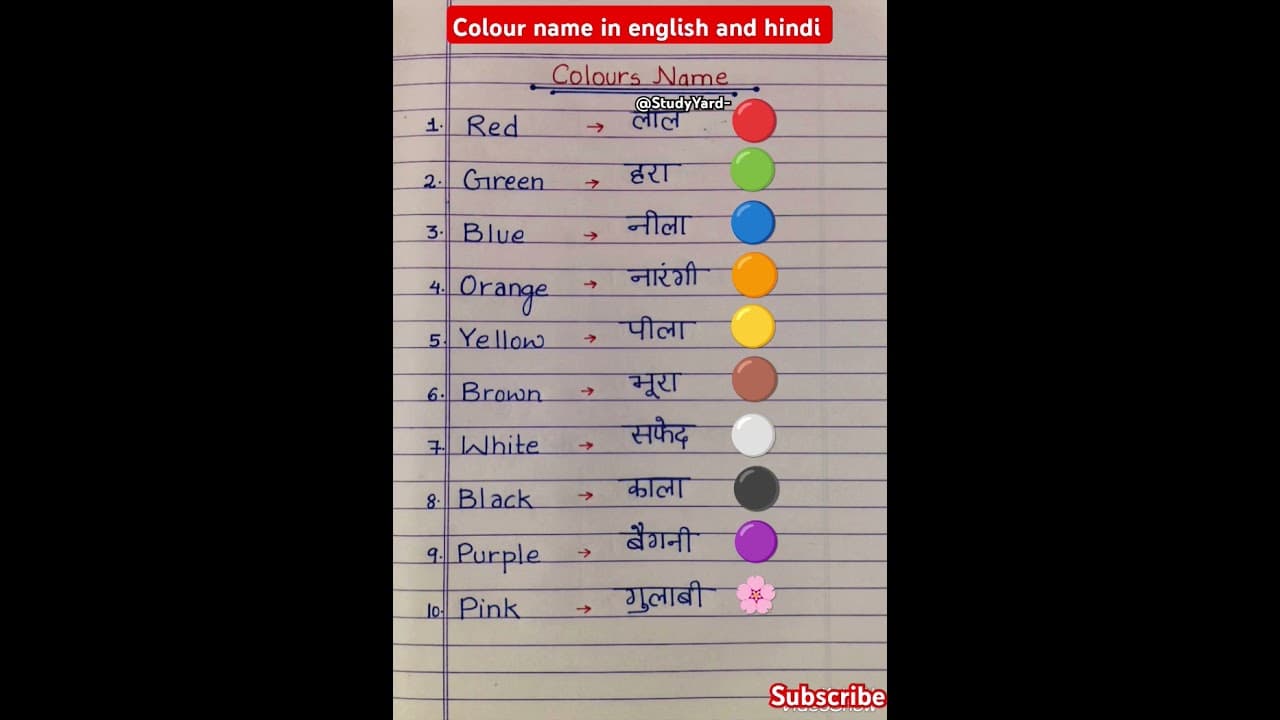 Colour name in english and hindi
Colours Name
@StudyYard-
1. Red → लाल
2. Green → हरा
3. Blue → नीला
4. Orange → नारंगी
5. Yellow → पीला
6. Brown → भूरा
7. White → सफेद
8. Black → काला
9. Purple → बैगनी
10. Pink → गुलाबी
Subscribe